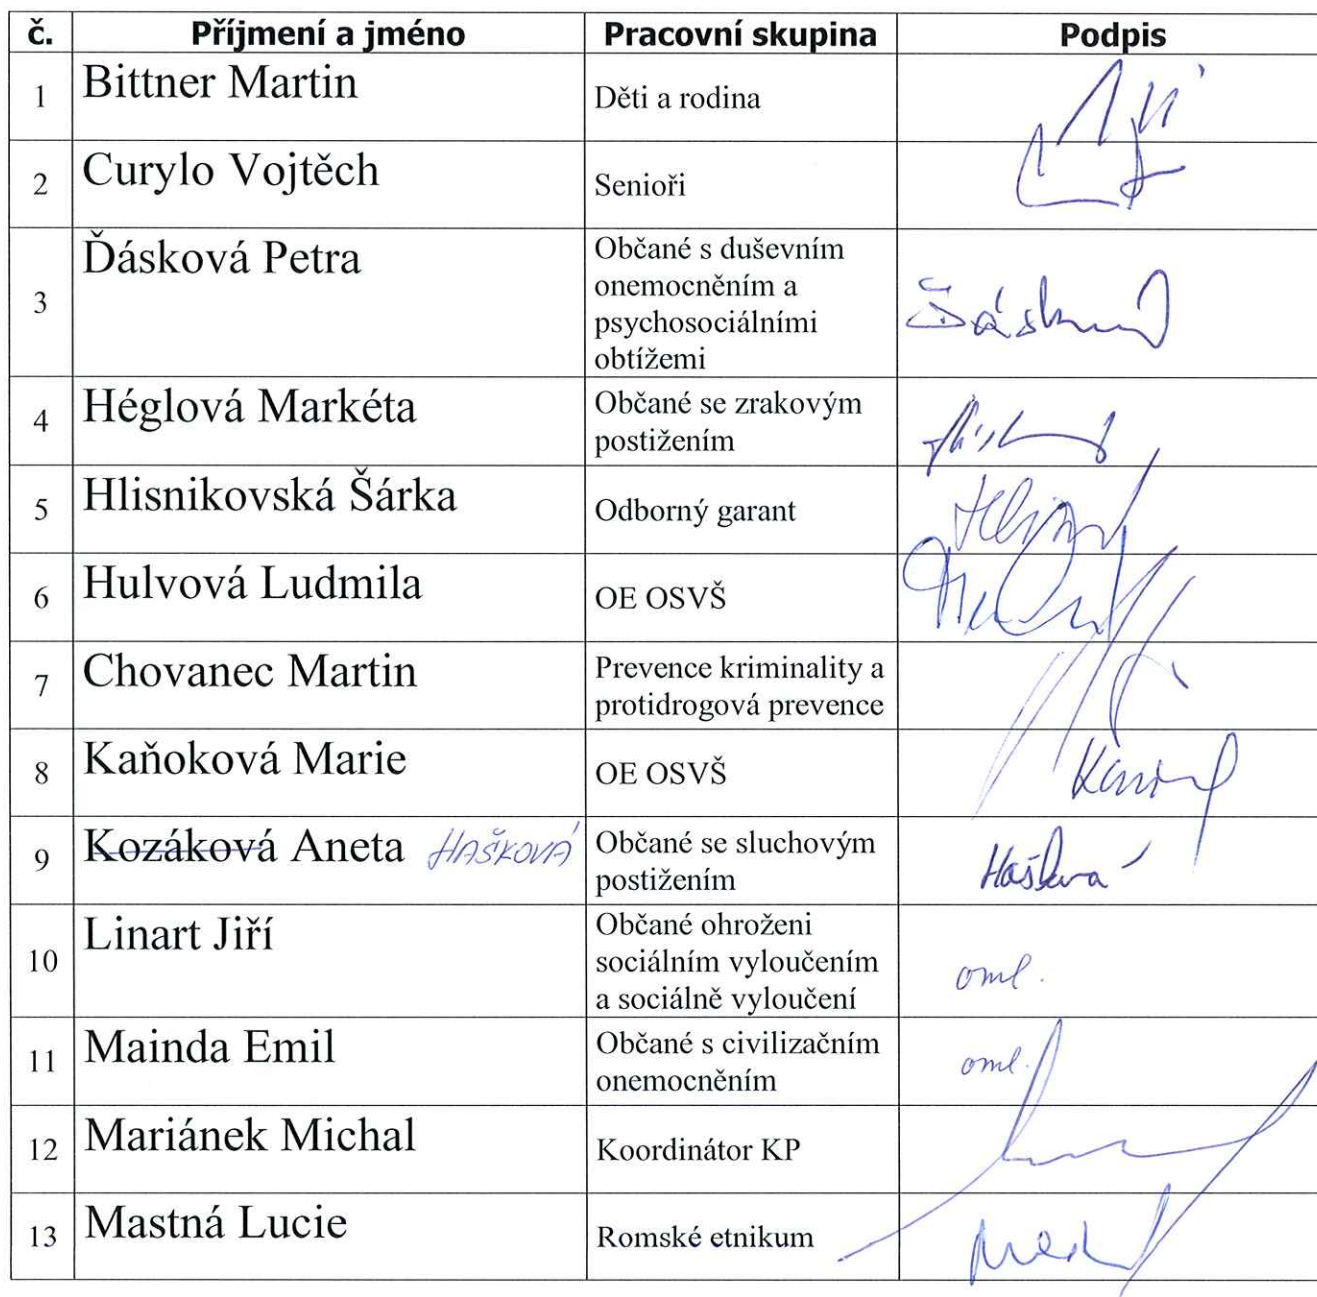 č. Příjmení a jméno Pracovní skupina Podpis
1 Bittner Martin Děti a rodina
2 Curylo Vojtěch Senioři
3 Ďásková Petra Občané s duševním
onemocněním a
psychosociálními
obtížemi
4 Héglová Markéta Občané se zrakovým
postižením
5 Hlisnikovská Šárka Odborný garant
6 Hulvová Ludmila OE OSVŠ
7 Chovanec Martin Prevence kriminality a
protidrogová prevence
8 Kaňoková Marie OE OSVŠ
9 Kozáková Aneta HAŠKOVÁ Občané se sluchovým Hašková
postižením
10 Linart Jiří Občané ohroženi
sociálním vyloučením oml.
a sociálně vyloučení
11 Mainda Emil Občané s civilizačním oml.
onemocněním
12 Mariánek Michal Koordinátor KP
13 Mastná Lucie Romské etnikum